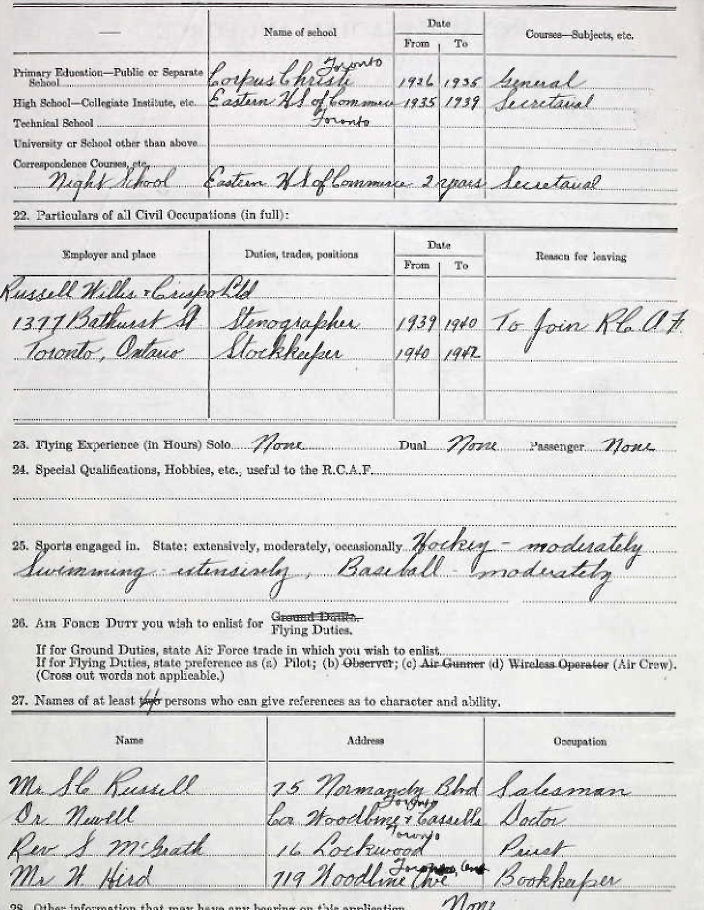 Name of school
Date
From To
Courses—Subjects, etc.
Toronto
Primary Education—Public or Separate
School Corpus Christi 1926 1935 General
High School—Collegiate Institute, etc. Eastern H S of Commerce 1935 1939 Secretarial
Technical School Toronto
University or School other than above
Correspondence Courses, etc.
Night School Eastern H S of Commerce 2 years Secretarial
22. Particulars of all Civil Occupations (in full):
Employer and place
Duties, trades, positions
Date
From To
Reason for leaving
Russell Willis & Crispo Ltd
1377 Bathurst St Stenographer 1939 1940 To Join R.C.A.F.
Toronto, Ontario Stockkeeper 1940 1942
23. Flying Experience (in Hours) Solo None Dual None Passenger None
24. Special Qualifications, Hobbies, etc., useful to the R.C.A.F.
25. Sports engaged in. State: extensively, moderately, occasionally Hockey - moderately
Swimming - extensively, Baseball - moderately
26. AIR FORCE DUTY you wish to enlist for Ground Duties.
Flying Duties.
If for Ground Duties, state Air Force trade in which you wish to enlist
If for Flying Duties, state preference as (a) Pilot; (b) Observer; (c) Air Gunner (d) Wireless Operator (Air Crew).
(Cross out words not applicable.)
27. Names of at least persons who can give references as to character and ability.
Name Address Occupation
Mr S C Russell 75 Normandy Blvd Salesman
Toronto
Dr Newell Cor Woodbine & Cassells Doctor
Toronto
Rev S McGrath 16 Lockwood Priest
Toronto, Ont
Mr W Hird 719 Woodbine Ave Bookkeeper
28. Other information that may have any bearing on this application None